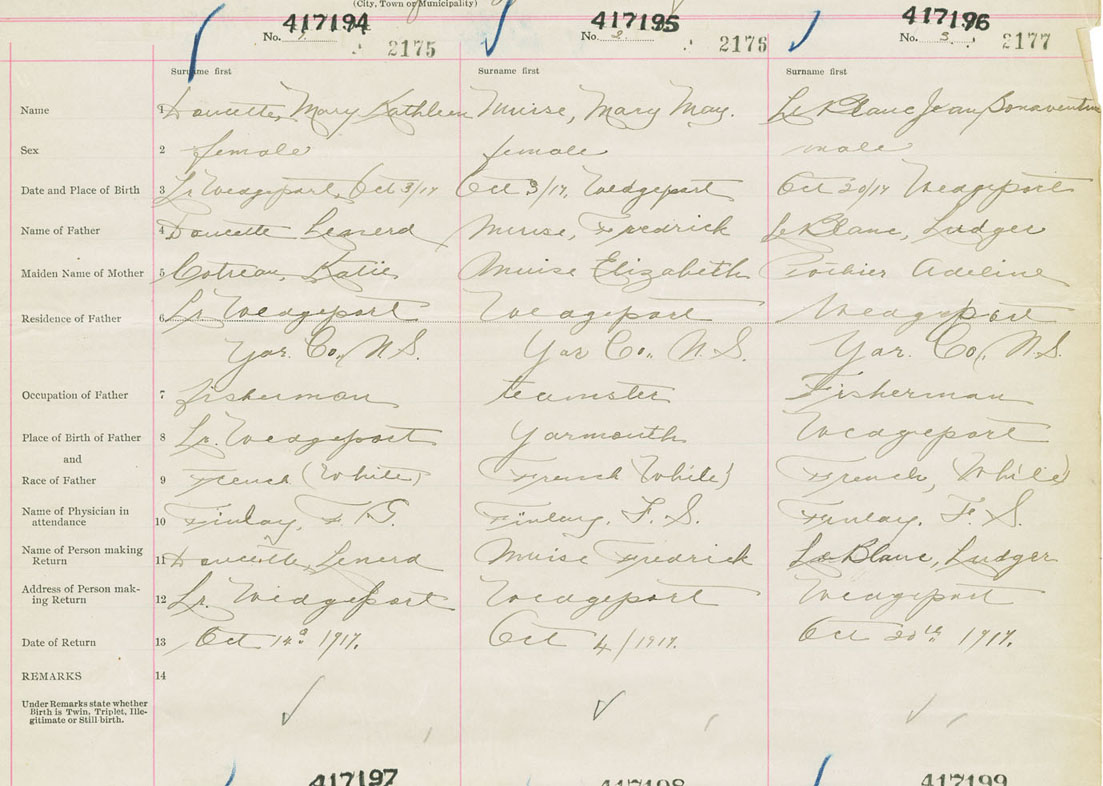 (City, Town or Municipality)
417194 417195 417196
No. 1 2175 No. 2 2176 No. 3 2177
Surname first Surname first Surname first
Name 1 Doucette, Mary Kathleen Muise, Mary May. LeBlanc Jean Bonaventure
Sex 2 female female male
Date and Place of Birth 3 Lr. Wedgeport, Oct 3/17 Oct 3/17, Wedgeport Oct 20/17 Wedgeport
Name of Father 4 Doucette Lenerd Muise, Fredrick LeBlanc, Ludger
Maiden Name of Mother 5 Cotreau, Katie Muise Elizabeth Pothier Adeline
Residence of Father 6 Lr. Wedgeport Wedgeport Wedgeport
Yar. Co., N.S. Yar Co., N.S. Yar. Co., N.S.
Occupation of Father 7 fisherman teamster Fisherman
Place of Birth of Father 8 Lr. Wedgeport Yarmouth Wedgeport
and
Race of Father 9 French (White) French (White) French, (White)
Name of Physician in
attendance 10 Finlay, F. G. Finlay, F. S. Finlay, F. S.
Name of Person making
Return 11 Doucette, Lenerd Muise Fredrick LeBlanc, Ludger
Address of Person mak-
ing Return 12 Lr. Wedgeport Wedgeport Wedgeport
Date of Return 13 Oct 1917. Oct 4/1917. Oct 20th 1917.
REMARKS 14
Under Remarks state whether
Birth is Twin, Triplet, Ille-
gitimate or Still birth.
417197 417198 417199